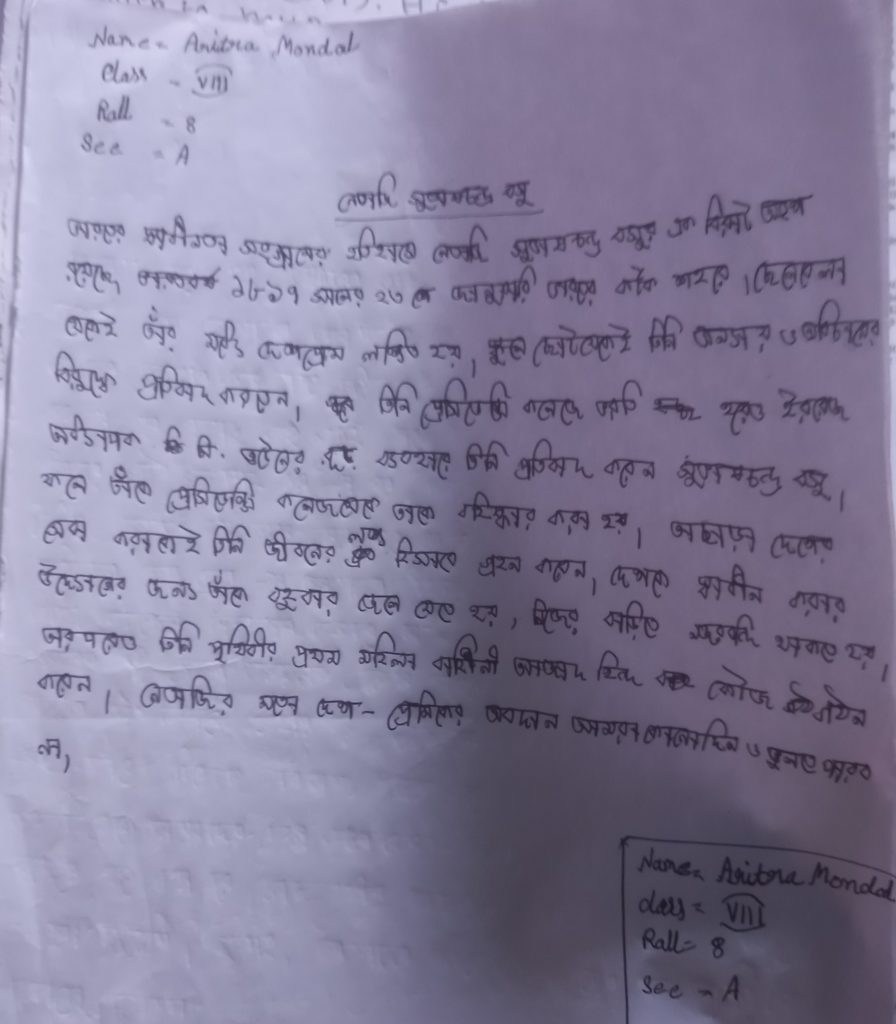 Name = Anitra Mondal
Class - VIII
Roll = 8
See = A
নেতাজি সুভাষচন্দ্র বসু
ভারতের স্বাধীনতা সংগ্রামের ইতিহাসে নেতাজি সুভাষচন্দ্র বসুর এক বিরাট
রয়েছে ১৮৯৭ সালের ২৩ শে জানুয়ারি কটক শহরে । ছেলেবেলা
থেকেই তাঁর মধ্যে দেশপ্রেম লক্ষিত হয়, ছোটোথেকেই তিনি অন্যায় ও
বিরুদ্ধে প্রতিবাদ করতেন, তিনি প্রেসিডেন্সি কলেজে ইংরেজ
অধ্যাপক ওটেনের তিনি প্রতিবাদ করেন সুভাষচন্দ্র বসু,
ফলে তাঁকে প্রেসিডেন্সি কলেজথেকে বহিষ্কার করা হয় । দেশের
সেবা করাকেই তিনি জীবনের লক্ষ্য হিসাবে গ্রহন করেন, দেশকে স্বাধীন করার
উদ্দেশ্যের জন্য তাঁকে বহুবার জেলে যেতে হয়, নিজের বাড়িতে থাকতে হয় ।
তিনি পৃথিবীর প্রথম মহিলা বাহিনী আজাদ হিন্দ ফৌজ গঠন
করেন । নেতাজির মতো দেশ - প্রেমিকের অবদান আমরা কোনোদিন ও ভুলতে পারব
না,
Name = Anitra Mondal
class = VIII
Roll = 8
See = A